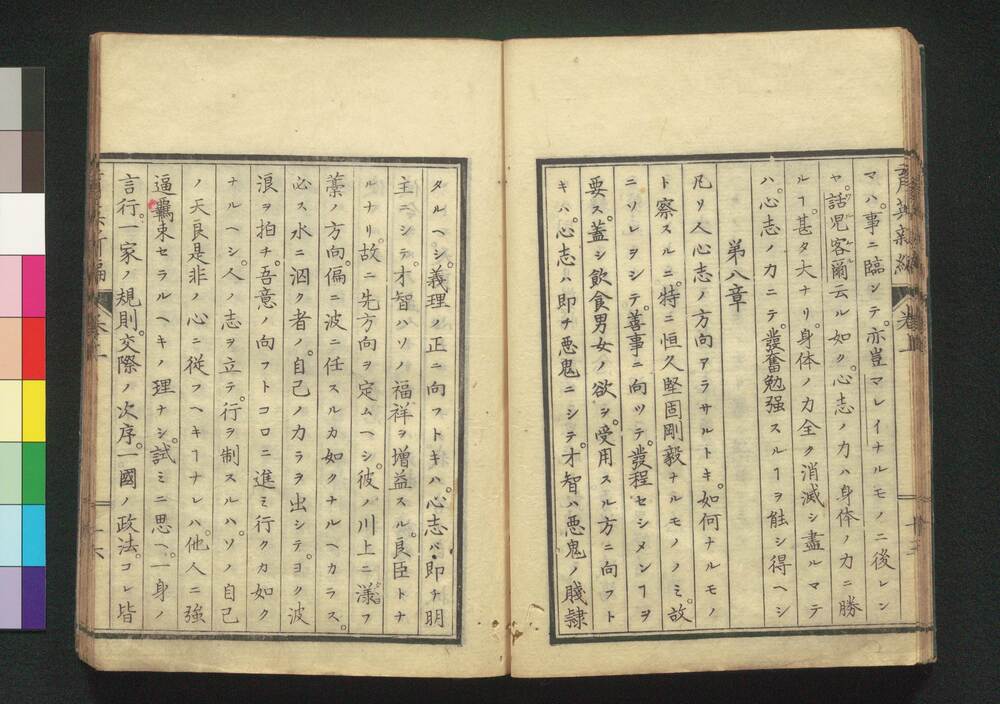 育英新編 巻五
マハ。事ニ臨ンテ。亦豈マレイナルモノニ後レン
ヤ。話児客爾云ル如ク。心志ノ力ハ身体ノ力ニ勝
ルヿ。甚タ大ナリ。身体ノ力全ク消滅シ盡ルマテ
ハ。心志ノ力ニテ。發奮勉强スルヿヲ能シ得ヘシ
第八章
凡リ人心志ノ方向アラサルトキ。如何ナルモノ
ト察スルニ。特ニ恒久堅固剛毅ナルモノノミ。故
ニソレヲシテ。善事ニ向ツテ。發程セシメンヿヲ
要ス。蓋シ飲食男女ノ欲ヲ。受用スル方ニ向フト
キハ。心志ハ即チ悪鬼ニシテ。才智ハ悪鬼ノ賤隷
タルヘシ。義理ノ正ニ向フトキハ。心志ハ・即チ明
主ニシテ。才智ハソノ福祥ヲ増益スル。良臣トナ
ルナリ。故ニ先方向ヲ定ムヘシ。彼ノ川上ニ漾フ
藁ノ方向。偏ニ波ニ任スルカ如クナルヘカラス。
必ス水ニ泅ク者ノ。自己ノ力ヲ出シテ。ヨク波
浪ヲ拍チ。吾意ノ向フトコロニ進ミ行クカ如ク
ナルヘシ。人ノ志ヲ立テ。行ヲ制スルハ。ソノ自己
ノ天良是非ノ心ニ従フヘキヿナレハ。他人ニ強
逼羈束セラルヘキノ理ナシ。試ミニ思ヘ。一身ノ
言行。一家ノ規則。交際ノ次序。一國ノ政法。コレ皆